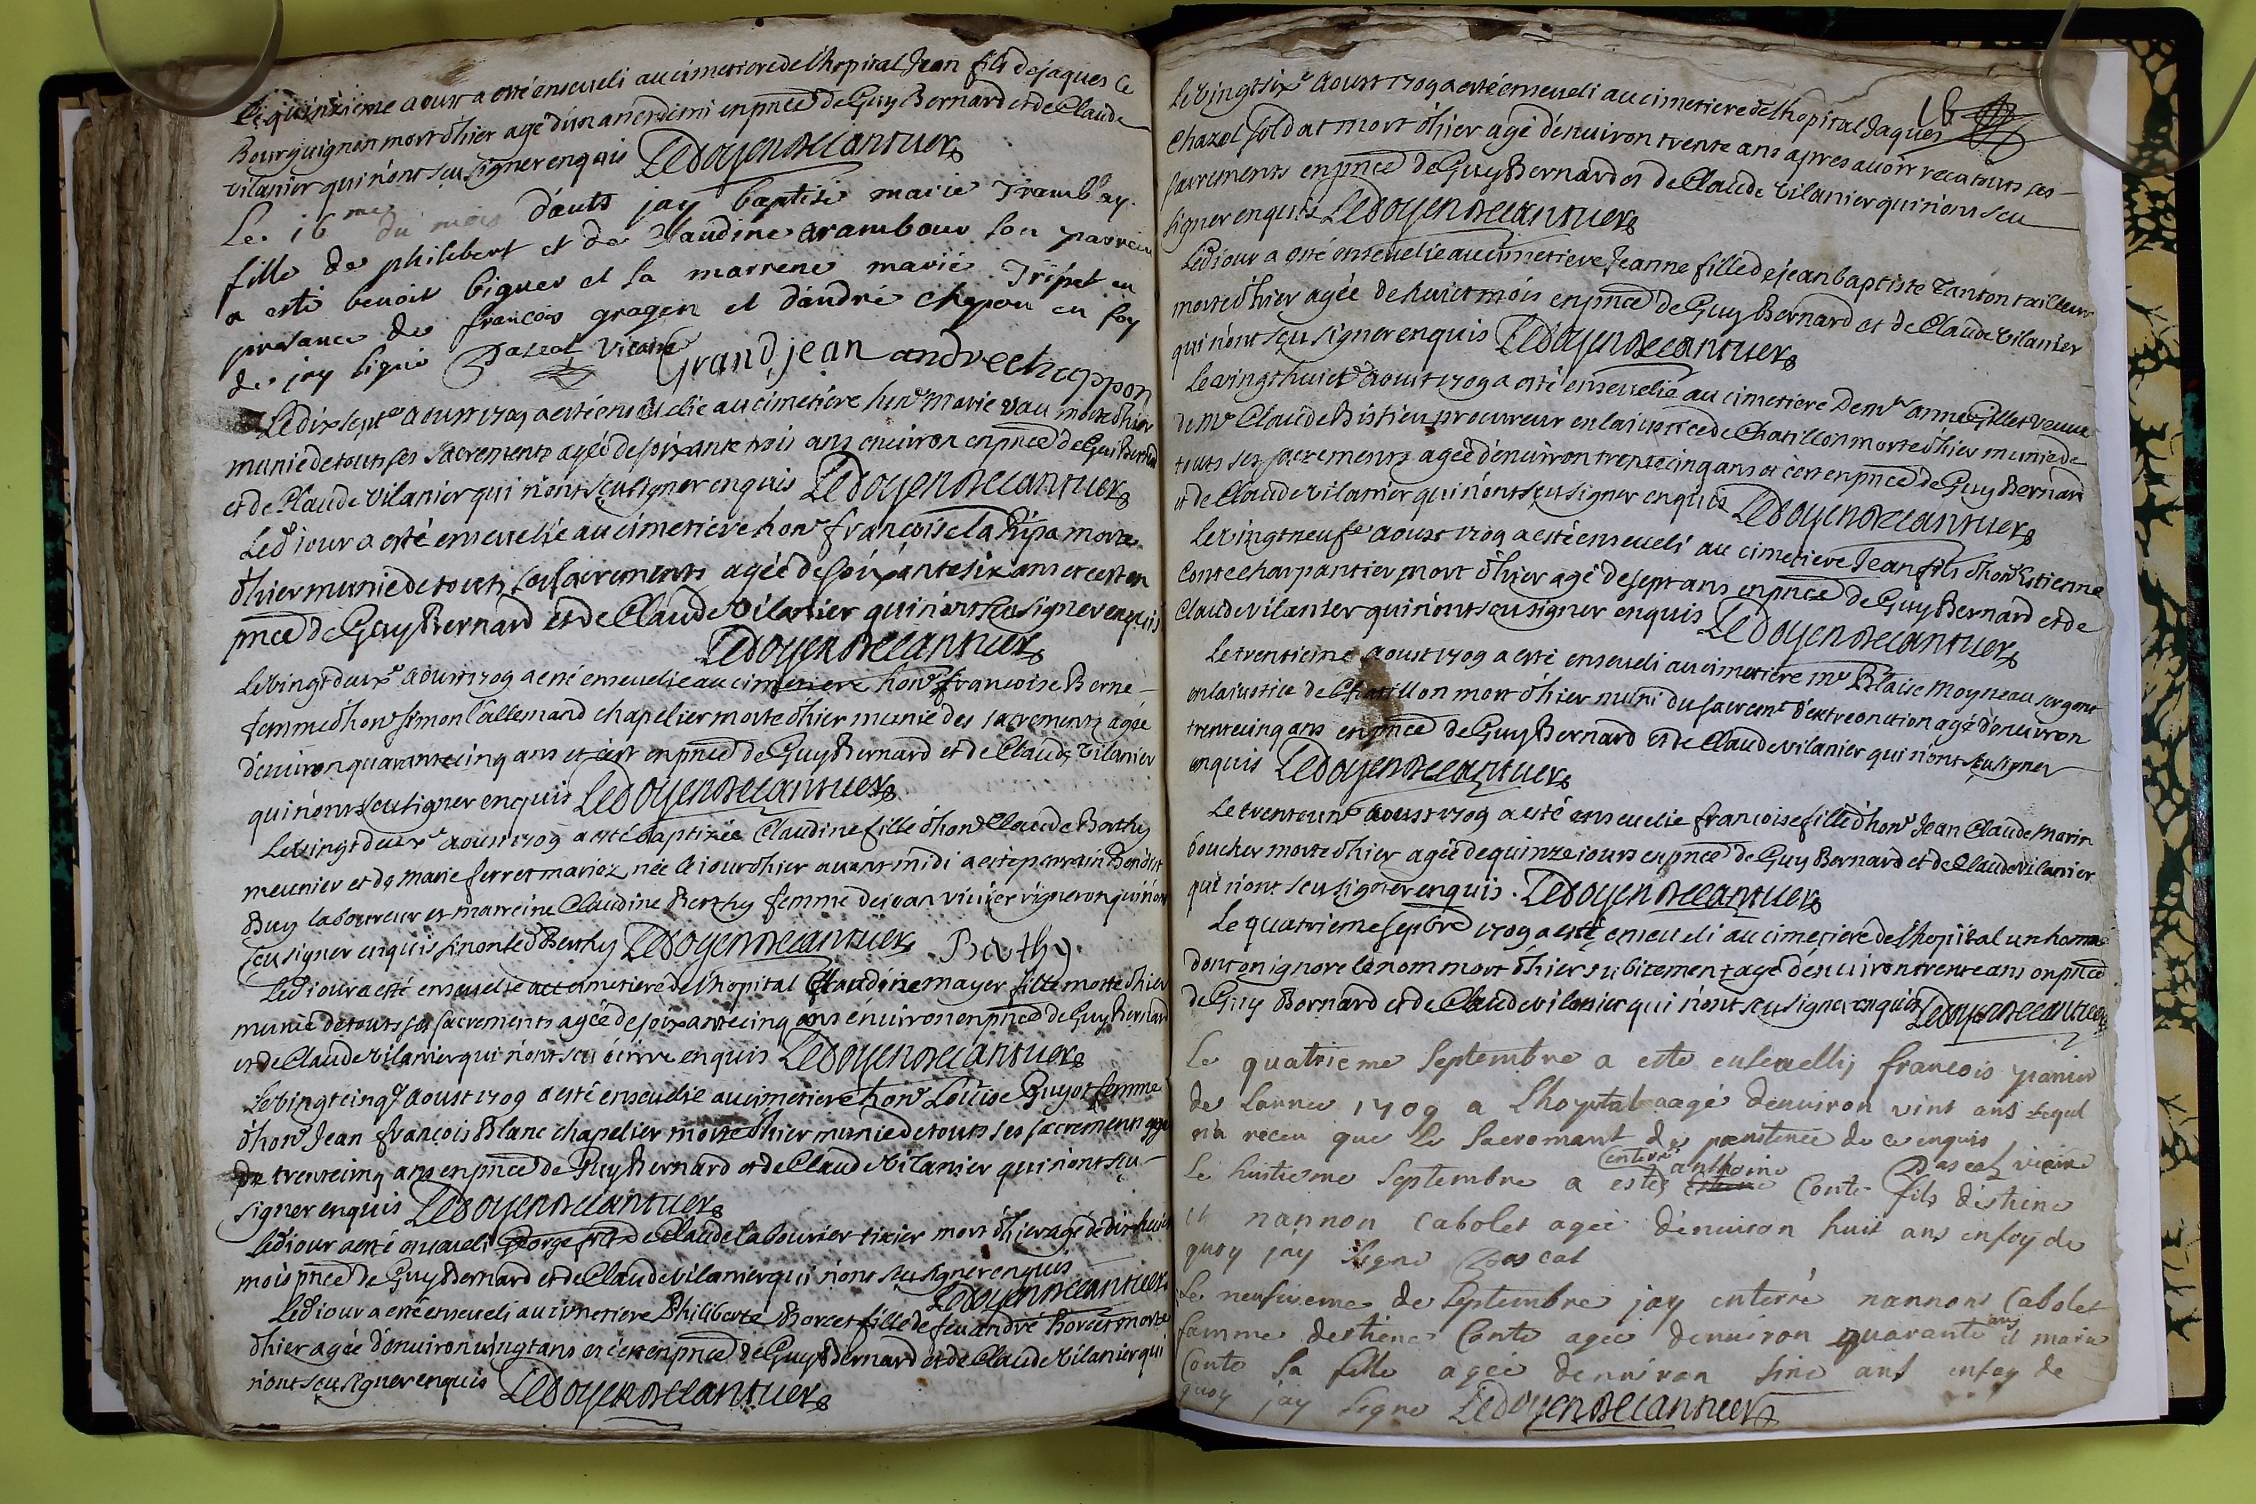 Le quinzieme aoust a esté enseueli au cimetiere de l'hopital Jean fils de jaques Ce
Bourguignon mort d'hier agé d'un an et demi en pñce de Guy Bernard et de Claude
Vilanier qui n'ont sçu signer enquis Ledoyen Decantuer
Le 16me du mois d'auts jay baptisé marie Tramblay
fille de philibert et de Claudine arambour son parrein
a esté benoit biguer et sa marrene marie Tripet en
presance de francois gragen et d'andré chapon en foy
de jay signé Pascal Vicaire Grandjean andre chappon
Le dix septe aoust 1709 a esté enseuelie au cimetiere hone marie vau morte d'hier
munie de touts ses sacrements agée de soixante trois ans enuiron en pñce de Gui Bernard
et de Claude Vilanier qui n'ont sçu signer enquis Ledoyen Decantuer
Led iour a esté enseuelie au cimetiere hone françoise la Ripa morte
d'hier munie de touts ses sacrements agée de soixante six ans et c'est en
pñce de Guy Bernard et de Claude Vilanier qui n'ont sçu signer enquis
Ledoyen Decantuer
Le vingt deuxe aoust 1709 a esté enseuelie au cimetiere hone francoise Berne
femme d'hone simon l'allemand chapelier morte d'hier munie des sacrements agée
d'enuiron quarante cinq ans et c'est en pñce de Guy Bernard et de Claude Vilanier
qui n'ont sçu signer enquis Ledoyen Decantuer
Le vingt deuxe aoust 1709 a esté baptizée Claudine fille d'hone Claude Berthy
meunier et de marie ferret mariez née le iour d'hier auant midi a esté parrain Benoist
Buy laboureur et marreine Claudine Berthy femme de jean vinier vigneron qui n'ont
sçu signer enquis sinon led Berthy Ledoyen Decantuer Berthy
Led iour a esté enseuelie au cimetiere de l'hopital Claudine mayer fille morte d'hier
munie de touts ses sacrements agée de soixante cinq ans enuiron en pñce de Guy Bernard
et de Claude Vilanier qui n'ont sçu écrire enquis Ledoyen Decantuer
Le vingt cinqe aoust 1709 a esté enseuelie au cimetiere hone Loüise Guyot femme
d'hone Jean françois Blanc chapelier morte d'hier munie de touts ses sacrements agée
de trente cinq ans en pñce de Guy Bernard et de Claude Vilanier qui n'ont sçu
signer enquis Ledoyen Decantuer
Led iour a esté enseueli George fils de Claude labourier tixier mort d'hier agé de dix huict
mois pñce de Guy Bernard et de Claude Vilanier qui n'ont sçu signer enquis
Ledoyen Decantuer
Led iour a esté enseueli au cimetiere Philiberte Borcet fille de feu andré Borcet morte
d'hier agée d'enuiron vingt ans et c'est en pñce de Guy Bernard et de Claude Vilanier qui
n'ont sçu signer enquis Ledoyen Decantuer
16
Le vingt sixe aoust 1709 a esté enseueli au cimetiere de l'hopital Jaques
Chazel soldat mort d'hier agé d'enuiron trente ans apres auoir receu touts ses
sacrements en pñce de Guy Bernard et de Claude Vilanier qui n'ont sçu
signer enquis Ledoyen Decantuer
Led iour a esté enseuelie au cimetiere Jeanne fille de jean baptiste Tanton tailleur
morte d'hier agée de huict mois en pñce de Guy Bernard et de Claude Vilanier
qui n'ont sçu signer enquis Ledoyen Decantuer
Le vingt huicte aoust 1709 a esté enseuelie au cimetiere Demlle anne Gillet veuue
de Mr Claude Bistieu procureur en la iustice de Chatillon morte d'hier munie de
touts ses sacrements agée d'enuiron trente cinq ans et c'est en pñce de Guy Bernard
et de Claude Vilanier qui n'ont sçu signer enquis Ledoyen Decantuer
Le vingt neufe aoust 1709 a esté enseueli au cimetiere Jean fils d'hone Estienne
Conte charpantier mort d'hier agé de sept ans en pñce de Guy Bernard et de
Claude Vilanier qui n'ont sçu signer enquis Ledoyen Decantuer
Le trentieme aoust 1709 a esté enseueli au cimetiere mr Blaise Moyneau sergent
en la iustice de Chatillon mort d'hier muni du sacremt d'extreonction agé d'enuiron
trente cinq ans en pñce de Guy Bernard et de Claude Vilanier qui n'ont sçu signer
enquis Ledoyen Decantuer
Le trente une aoust 1709 a esté enseuelie francoise fille d'hone Jean Claude Marin
boucher morte d'hier agée de quinze iours en pñce de Guy Bernard et de Claude Vilanier
qui n'ont sçu signer enquis. Ledoyen Decantuer
Le quatrieme septbre 1709 a esté enseueli au cimetiere de l'hopital un home
dont on ignore le nom mort d'hier subitement agé d'enuiron trente ans en pñce
de Guy Bernard et de Claude Vilanier qui n'ont sçu signer enquis Ledoyen Decantuer
Le quatrieme septembre a este enseuellij francois panier
de l'annee 1709 a Lhopital aagé denuiron vint ans lequel
n'a receu que le sacromant de penitence de ce enquis
Pascal vicaire
Le huitieme septembre a esté enterré anthoine Conte fils d'estiene
et nannon Cabolet agée d'enuiron huit ans en foy de
quoy j'ay signé Pascal
Le neufuieme de septembre jay enterré nannon Cabolet
famme d'estiene Conte agee denuiron quarante ans et marie
Conte sa fille agée denuiron sinc ans en foy de
quoy jay signe Ledoyen Decantuer